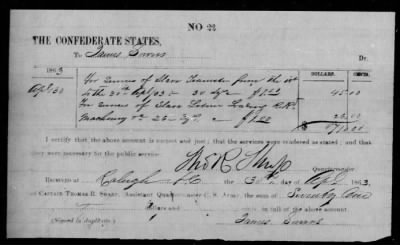 No 22
THE CONFEDERATE STATES,
To James Evans Dr.
1863 DOLLARS. CENTS.
Apl 30 For services of Slave Teamster from the 1st
to the 30th Apl/63 30 dys @ $1.50 45.00
For services of Slave Labour R.R.
Machinery 26 dys @ $1.00 26.00
$ 71.00
I certify that the above account is correct and just; that the services were rendered as stated; and that
they were necessary for the public service.
Thos R Sharp
Quartermaster
RECEIVED at Raleigh N.C. the 30th day of Apl 1863,
of CAPTAIN THOMAS R. SHARP, Assistant Quartermaster C. S. Army, the sum of Seventy One
dollars and cents, in full of the above account.
(Signed in duplicate.) James Evans